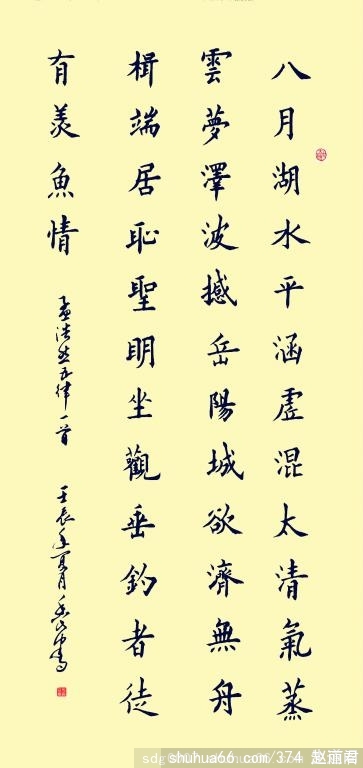 八月湖水平涵虛混太清氣蒸
雲夢澤波撼岳陽城欲濟無舟
楫端居恥聖明坐觀垂釣者徒
有羨魚情
孟浩然五律一首
壬辰年夏月
shuhua66 com/374 赵丽君